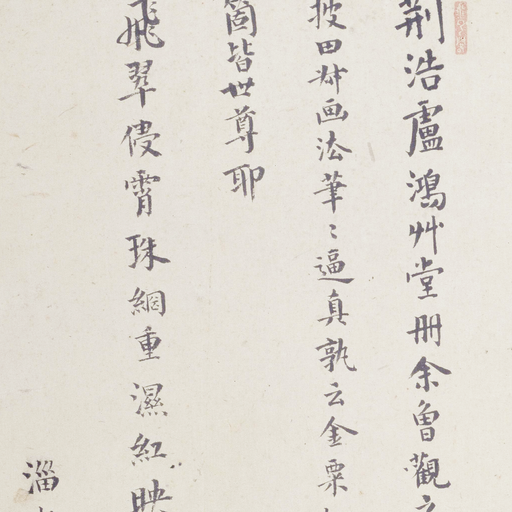 荆浩盧鴻艸堂册余魯觀
披田叔画法筆〻逼真孰云金粟
箇皆世尊耶
飛翠侵霄珠網重濕紅映
淄